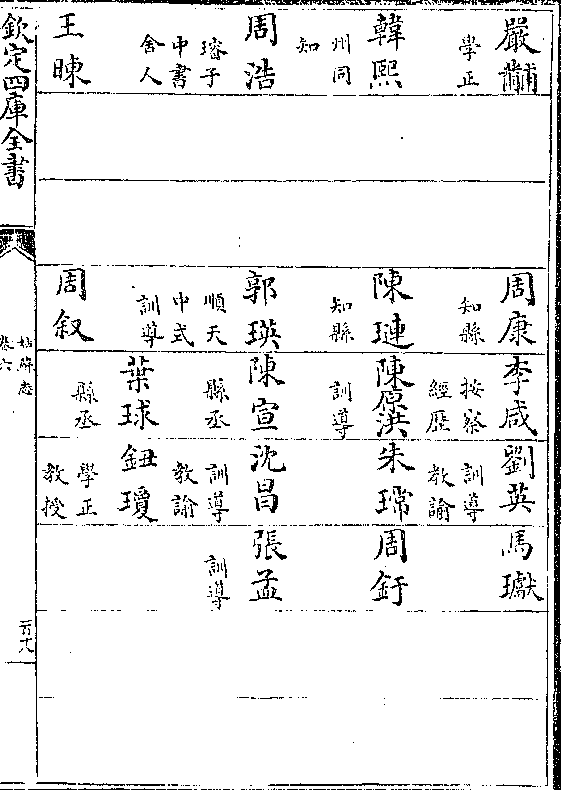 嚴黼
學正
韓熙
州同
知
周浩
璿子
中書
舍人
王暕
周康
知縣
陳璉
知縣
郭瑛
順天
中式
訓導
周叙
李咸
按察
經歷
陳原洪
訓導
陳宣
縣丞
葉球
縣丞
劉英
訓導
教諭
朱瑺
沈昌
訓導
教諭
鈕瓊
學正
教授
馬瓛
周釪
張孟
訓導
欽定四庫全書
姑蘇志
卷六